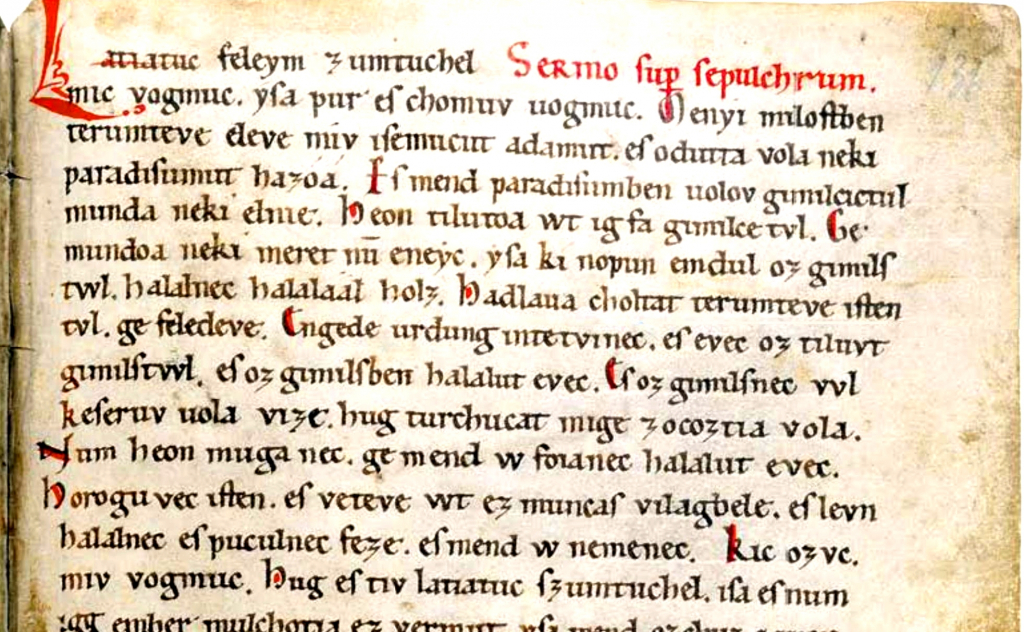 Latiatuc feleym zumtuchel Sermo sup sepulchrum.
mic vogmuc. ysa pur es chomuv uogmuc. Menyi milostben
terumteve eleve miv isemucut adamut. es odutta vola neki
paradisumut hazoa. Es mend paradisumben uolov gimilcictul
munda neki elnie. Heon tilutoa wt ig fa gimilce tvl. Ge
mundoa neki meret nū eneyc. ysa ki nopun emdul oz gimils
twl. halalnec halalaal holz. Hadlaua choltat terumteve isten
tvl. ge feledeve. Engede urdung intetvinec. es evec oz tiluvt
gimilstwl. es oz gimilsben halalut evec. Es oz gimilsnec vvl
keseruv uola vize. hug turchucat mige zocoztia vola.
Num heon muga nec. ge mend w foianec halalut evec.
Horogu vec isten. es veteve wt ez muncas vilagbele. es levn
halalnec es puculnec feze. es mend w nemenec. Kic ozvc.
miv vogmuc. Hug es tiv latiatuc szumtuchel. isa es num
igg ember mulchotia ez vermut. ysa mend